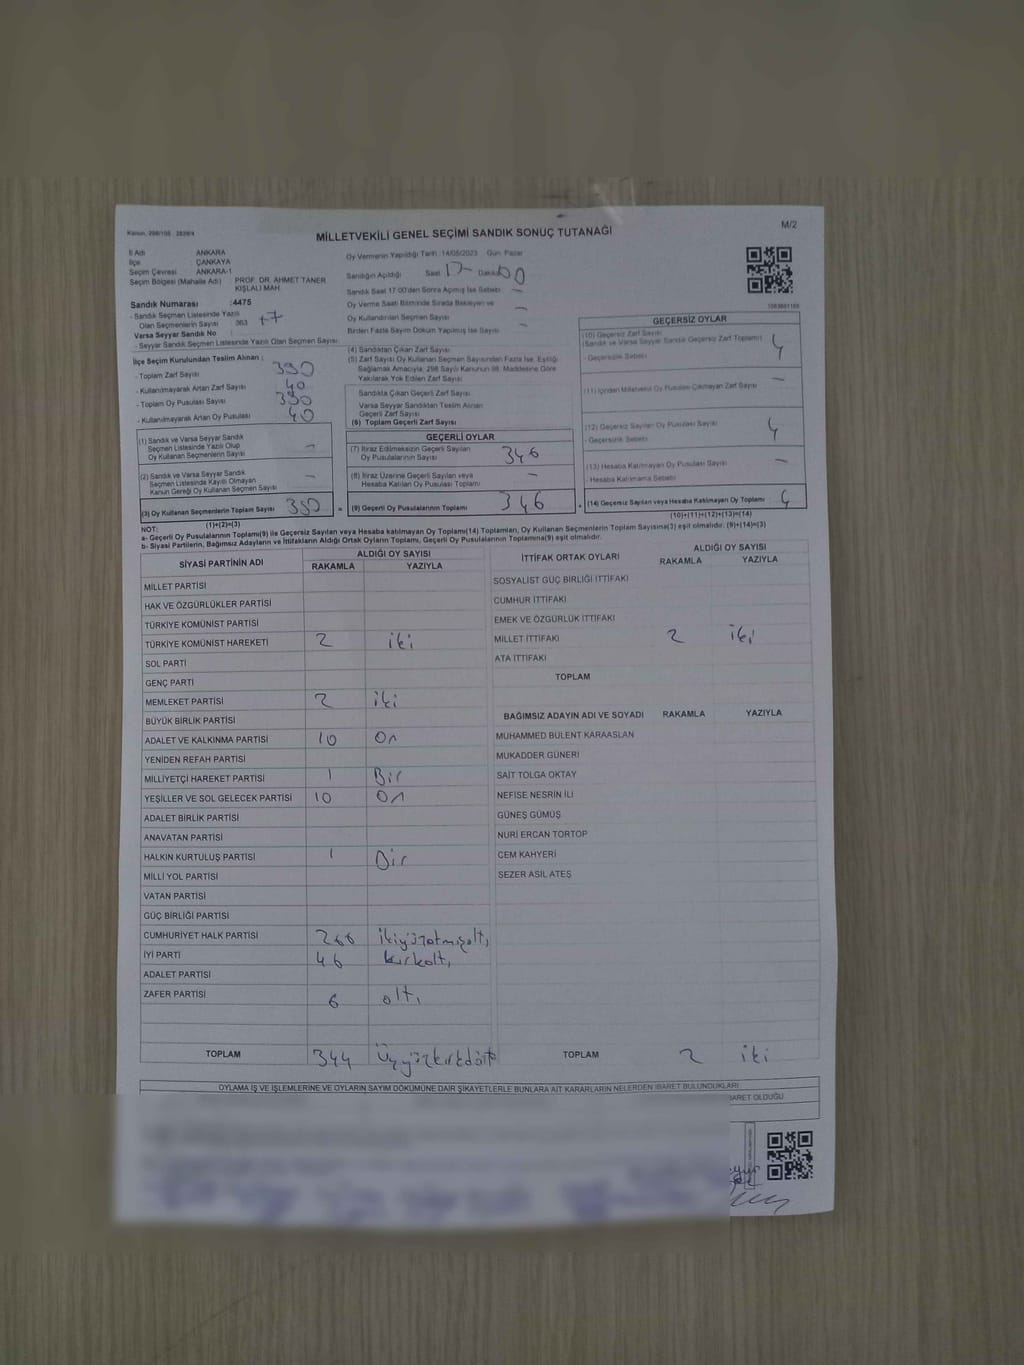 Kanun, 298/105 - 2839/4
MİLLETVEKİLİ GENEL SEÇİMİ SANDIK SONUÇ TUTANAĞI
M/2
İl Adı ANKARA
İlçe ÇANKAYA
Seçim Çevresi ANKARA-1
Seçim Bölgesi (Mahalle Adı) : PROF. DR. AHMET TANER
KIŞLALI MAH.
Sandık Numarası :4475
- Sandık Seçmen Listesinde Yazılı
Olan Seçmenlerin Sayısı 363 +7
Varsa Seyyar Sandık No
- Seyyar Sandık Seçmen Listesinde Yazılı Olan Seçmen Sayısı
İlçe Seçim Kurulundan Teslim Alınan :
- Toplam Zarf Sayısı 390
- Kullanılmayarak Artan Zarf Sayısı 40
- Toplam Oy Pusulası Sayısı 390
- Kullanılmayarak Artan Oy Pusulası 40
(1) Sandık ve Varsa Seyyar Sandık
Seçmen Listesinde Yazılı Olup
Oy Kullanan Seçmenlerin Sayısı -
(2) Sandık ve Varsa Seyyar Sandık
Seçmen Listesinde Kayıtlı Olmayan
Kanun Gereği Oy Kullanan Seçmen Sayısı -
(3) Oy Kullanan Seçmenlerin Toplam Sayısı 350 =
(1)+(2)=(3)
Oy Vermenin Yapıldığı Tarih :14/05/2023 Gün: Pazar
Sandığın Açıldığı Saat 17- Dakika 00
Sandık Saat 17:00'den Sonra Açılmış İse Sebebi -
Oy Verme Saati Bitiminde Sırada Bekleyen ve
Oy Kullandırılan Seçmen Sayısı -
Birden Fazla Sayım Döküm Yapılmış İse Sayısı -
(4) Sandıktan Çıkan Zarf Sayısı
(5) Zarf Sayısı Oy Kullanan Seçmen Sayısından Fazla İse, Eşitliği
Sağlamak Amacıyla, 298 Sayılı Kanunun 98. Maddesine Göre
Yakılarak Yok Edilen Zarf Sayısı
Sandıkta Çıkan Geçerli Zarf Sayısı
Varsa Seyyar Sandıktan Teslim Alınan
Geçerli Zarf Sayısı
(6) Toplam Geçerli Zarf Sayısı
GEÇERLİ OYLAR
(7) İtiraz Edilmeksizin Geçerli Sayılan
Oy Pusulalarının Sayısı 346
(8) İtiraz Üzerine Geçerli Sayılan veya
Hesaba Katılan Oy Pusulası Toplamı -
(9) Geçerli Oy Pusulalarının Toplamı 346 +
GEÇERSİZ OYLAR
(10) Geçersiz Zarf Sayısı
(Sandık ve Varsa Seyyar Sandık Geçersiz Zarf Toplamı) 4
- Geçersizlik Sebebi
(11) İçinden Milletvekili Oy Pusulası Çıkmayan Zarf Sayısı -
(12) Geçersiz Sayılan Oy Pusulası Sayısı 4
- Geçersizlik Sebebi
(13) Hesaba Katılmayan Oy Pusulası Sayısı -
- Hesaba Katılmama Sebebi
(14) Geçersiz Sayılan veya Hesaba Katılmayan Oy Toplamı 4
(10)+(11)+(12)+(13)=(14)
NOT:
a- Geçerli Oy Pusulalarının Toplamı(9) ile Geçersiz Sayılan veya Hesaba katılmayan Oy Toplamı(14) Toplamları, Oy Kullanan Seçmenlerin Toplam Sayısına(3) eşit olmalıdır. (9)+(14)=(3)
b- Siyasi Partilerin, Bağımsız Adayların ve İttifakların Aldığı Ortak Oyların Toplamı, Geçerli Oy Pusulalarının Toplamına(9) eşit olmalıdır.
SİYASİ PARTİNİN ADI ALDIĞI OY SAYISI
RAKAMLA YAZIYLA
MİLLET PARTİSİ
HAK VE ÖZGÜRLÜKLER PARTİSİ
TÜRKİYE KOMÜNİST PARTİSİ
TÜRKİYE KOMÜNİST HAREKETİ 2 iki
SOL PARTİ
GENÇ PARTİ
MEMLEKET PARTİSİ 2 iki
BÜYÜK BİRLİK PARTİSİ
ADALET VE KALKINMA PARTİSİ 10 On
YENİDEN REFAH PARTİSİ
MİLLİYETÇİ HAREKET PARTİSİ 1 Bir
YEŞİLLER VE SOL GELECEK PARTİSİ 10 On
ADALET BİRLİK PARTİSİ
ANAVATAN PARTİSİ
HALKIN KURTULUŞ PARTİSİ 1 Bir
MİLLİ YOL PARTİSİ
VATAN PARTİSİ
GÜÇ BİRLİĞİ PARTİSİ
CUMHURİYET HALK PARTİSİ 266 ikiyüzatmışaltı
İYİ PARTİ 46 kırkaltı
ADALET PARTİSİ
ZAFER PARTİSİ 6 altı
TOPLAM 344 Üçyüzkırkdört
İTTİFAK ORTAK OYLARI ALDIĞI OY SAYISI
RAKAMLA YAZIYLA
SOSYALİST GÜÇ BİRLİĞİ İTTİFAKI
CUMHUR İTTİFAKI
EMEK VE ÖZGÜRLÜK İTTİFAKI
MİLLET İTTİFAKI 2 iki
ATA İTTİFAKI
TOPLAM
BAĞIMSIZ ADAYIN ADI VE SOYADI RAKAMLA YAZIYLA
MUHAMMED BÜLENT KARAASLAN
MUKADDER GÜNERİ
SAİT TOLGA OKTAY
NEFİSE NESRİN İLİ
GÜNEŞ GÜMÜŞ
NURİ ERCAN TORTOP
CEM KAHYERİ
SEZER ASİL ATEŞ
TOPLAM 2 iki
OYLAMA İŞ VE İŞLEMLERİNE VE OYLARIN SAYIM DÖKÜMÜNE DAİR ŞİKAYETLERLE BUNLARA AİT KARARLARIN NELERDEN İBARET BULUNDUKLARI
BARET OLDUĞU